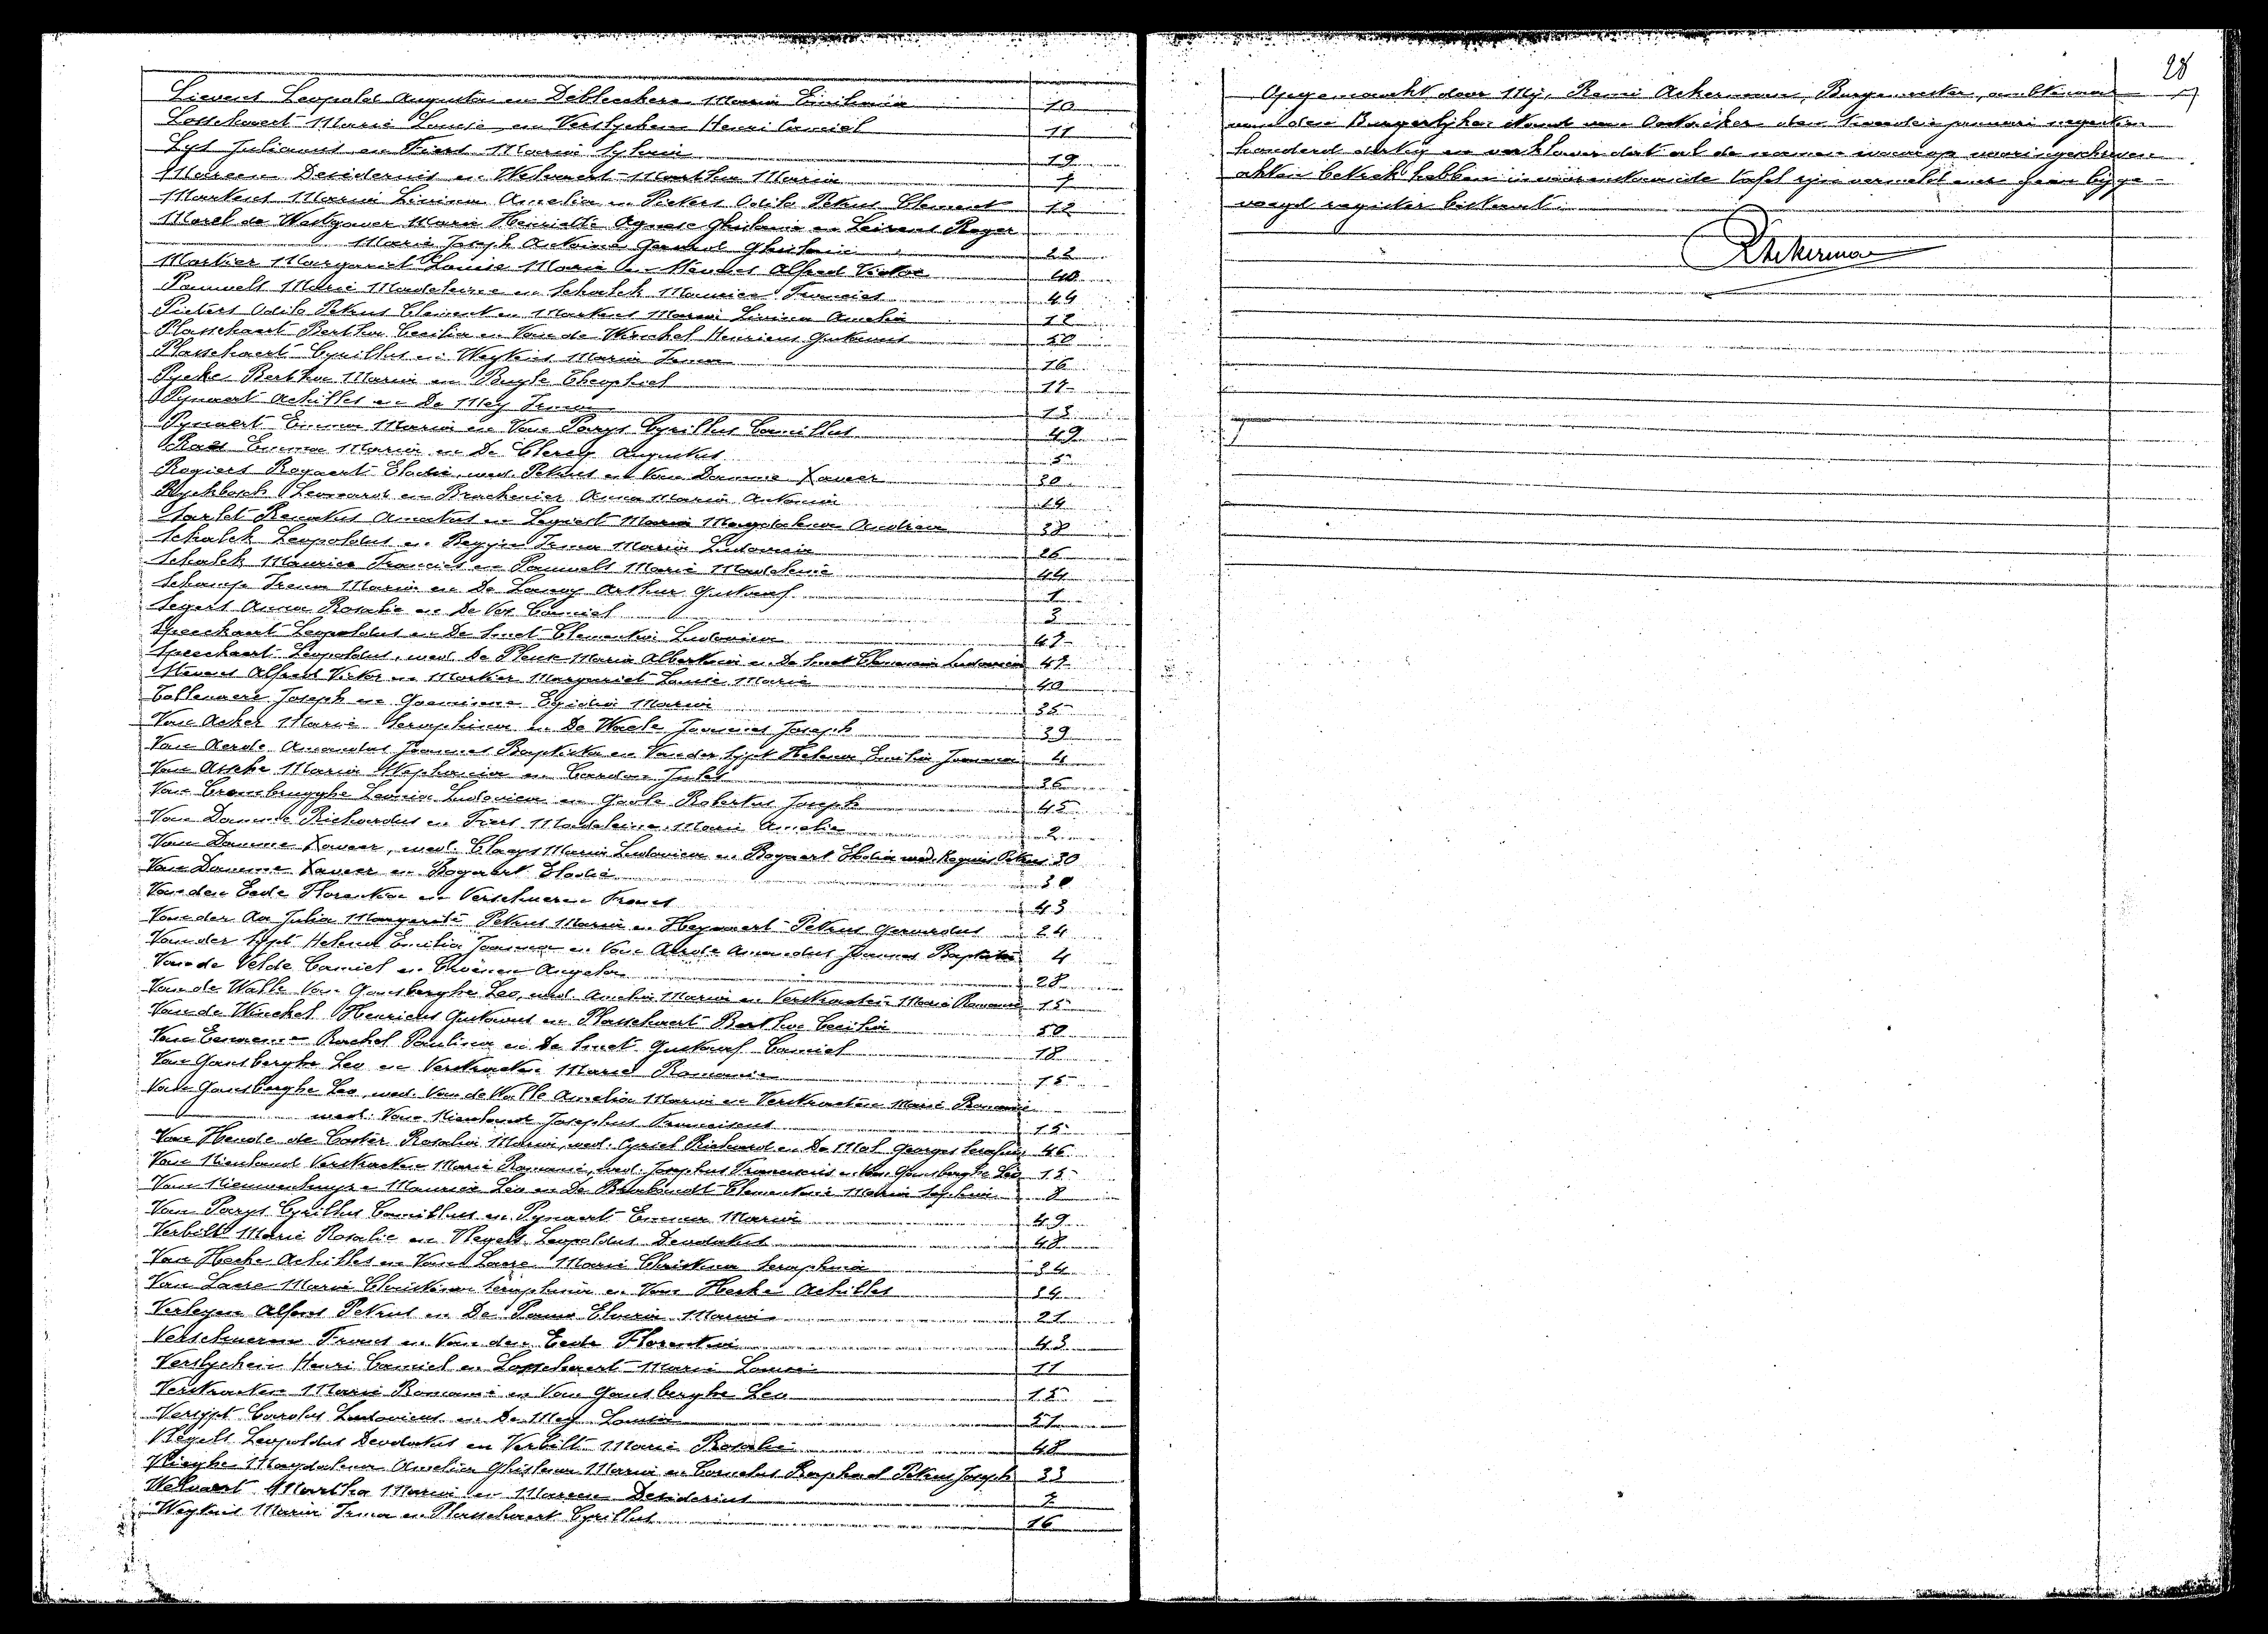 Lievens Leopold Augusta en Debleeckere Maria Emilienia 10
Losschaert Marie Louise en Verslychen Henri Camiel 11
Lys Julianus en Fiers Maria Sylvia 19
Mareen Desiderius en Welvaert Martha Maria 7
Markens Maria Livina Amelia en Piekers Odilo Petrus Clement 12
Morel de Westgaver Marie Henriette Agnese Ghislaine en Roger
Marie Joseph Antoine Gerard Ghislain 22
Mortier Margariet Louise Marie en Stevens Alfred Victor 40
Pauwels Marie Madeleine en Schalck Maurice Francies 44
Piekers Odilo Petrus Clement en Markens Maria Livina Amelia 12
Plasschaert Bertha Cecilia en Van de Winckel Henricus Gustavus 50
Plasschaert Cyrillus en Weytens Maria Irma 16
Pycke Bertha Maria en Buyle Theophiel 17
Pynaert Achilles en De Mey Irma 13
Pynaert Emma Maria en Van Parys Cyrillus Camillus 49
Raes Emma Maria en De Clercq Augustus 5
Rogiers Bogaert Elodie wed. Petrus en Van Damme Xaveer 30
Ryckbosch Leonard en Brackenier Anna Maria Antonia 14
Sarlet Renatus Amatus en Maria Magdalena Andrea 38
Schalck Leopoldus en Irma Maria Ludovica 26
Schalck Maurice Francies en Pauwels Marie Madeleine 44
Irena Maria en De Lanoy Arthur Gustaaf 1
Segers Anna Rosalie en De Vos Camiel 3
Speeckaert Leopoldus en De Smet Clementia Ludovica 47
Speeckaert Leopoldus, wed. De Maria Albertina en De Smet Clementia Ludovica 47
Stevens Alfred Victor en Mortier Margariet Louise Marie 40
Tollenaere Joseph en Goeminne Maria 35
Van Acker Marie Seraphina en De Waele Joannes Joseph 39
Van Aerde Amandus Joannes Baptista en Van der Sypt Helena Emilia Joanna 4
Van Assche Maria Stephania en Cardon Jules 36
Van Crombrugghe Leonia Ludovica en Goole Robertus Joseph 45
Van Damme Richardus en Fiers Madeleine Marie Amelie 2
Van Damme Xaveer, wed. Claeys Maria Ludovica en Bogaert Elodia wed. Rogiers Petrus 30
Van Damme Xaveer en Bogaert Elodie 30
Van den Eede Florentina en Verschueren Frans 43
Van der Aa Julia Margareta Petrus Maria en Heynaert Petrus Gerardus 24
Van der Sypt Helena Emilia Joanna en Van Aerde Amandus Joannes Baptista 4
Van de Velde Camiel en Angela 28
Van de Walle Van Gansberghe Leo, wed. Amelia Maria en Verstraeten Marie Romanie 15
Van de Winckel Henricus Gustavus en Plasschaert Bertha Cecilia 50
Van Rachel Paulina en De Smet Gustaaf Camiel 18
Van Gansberghe Leo en Verstraeten Marie Romanie 15
Van Gansberghe Leo, wed. Van de Walle Amelia Maria en Verstraeten Marie Romanie
wed. Van Nieuland Josephus Franciscus 15
Van Hende de Coster Rosalia Maria, wed. Richard en De Mol Georges Serafien 46
Van Nieuland Verstraeten Marie Romanie, wed. Josephus Franciscus en Van Gansberghe Leo 15
Van Nieuwenhuyse Maurice Leo en De Brabandt Clementina Maria 8
Van Parys Cyrillus Camillus en Pynaert Emma Maria 49
Verbilt Marie Rosalie en Vlegels Leopoldus Deodatus 48
Van Hecke Achilles en Van Laere Marie Christina Seraphina 34
Van Laere Marie Christina Seraphina en Van Hecke Achilles 34
Verleyen Alfons Petrus en De Pauw Maria 21
Verschueren Frans en Van den Eede Florentina 43
Verslychen Henri Camiel en Losschaert Marie Louise 11
Verstraeten Marie Romanie en Van Gansberghe Leo 15
Versypt Carolus Ludovicus en De Mey Louise 51
Vlegels Leopoldus Deodatus en Verbilt Marie Rosalie 48
Vlieghe Magdalena Amelia Ghislena Maria en Cornelus Raphael Petrus Joseph 33
Welvaert Martha Maria en Mareen Desiderius 7
Weytens Maria Irma en Plasschaert Cyrillus 16
28
Opgemaakt door Mij, Remi Ackerman, Burgemeester, ambtenaar
van den Burgerlijken Stand van Oostacker den tweeden januari negentien
honderd dertig en verklaar dat al de namen waarop waaringeschreven
akten betrek hebben in voorenstaande tafel zijn vermeld en in hier bijge-
voegd register bestaat.
R Ackerman